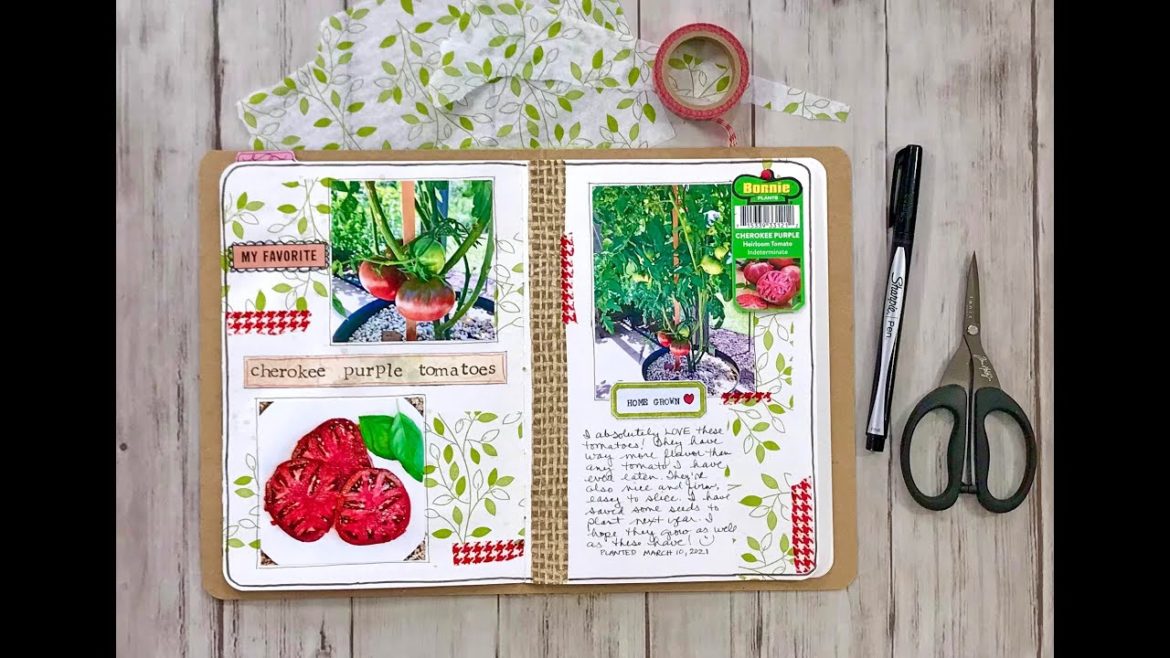 MY FAVORITE
cherokee purple tomatoes
Bonnie
PLANTS
CHEROKEE PURPLE
Heirloom Tomato
Indeterminate
HOME GROWN
I absolutely LOVE these
tomatoes! They have
way more flavor than
any tomato I have
ever eaten. They're
also nice and firm,
easy to slice. I have
saved some seeds to
plant next year. I
hope they grow as well
as these have!
PLANTED MARCH 10, 2021
Sharpie Pen